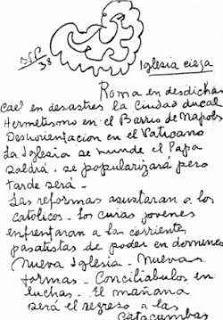 Iglesia cieja
38
Roma en desdichas
cae! en desastres la ciudad ducal
Hermetismo en el Barrio de Napols
Desorientacion en el Vaticano
La Iglesia se hunde el Papa
saldrá. se popularizará pero
tarde será.
Las reformas asustaran a los
catolicos. los curas jovenes
enfrentaran a las corrientes
pasatistas de poder en domenes
Nueva Iglesia. Nuevas
formas. Conciliabulos en
luchas. El mañana
será el regreso a las
catacumbas